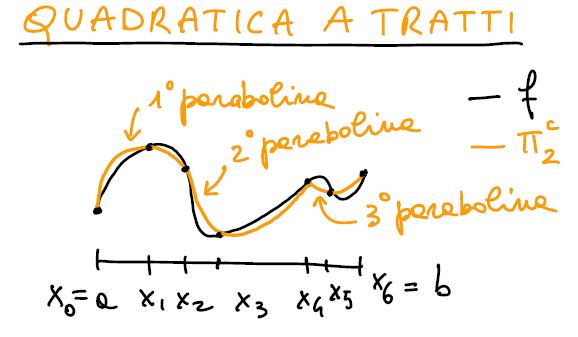 QUADRATICA A TRATTI
1° parabolina
2° parabolina
3° parabolina
— f
— Π₂ᶜ
x₀ = a x₁ x₂ x₃ x₄ x₅ x₆ = b